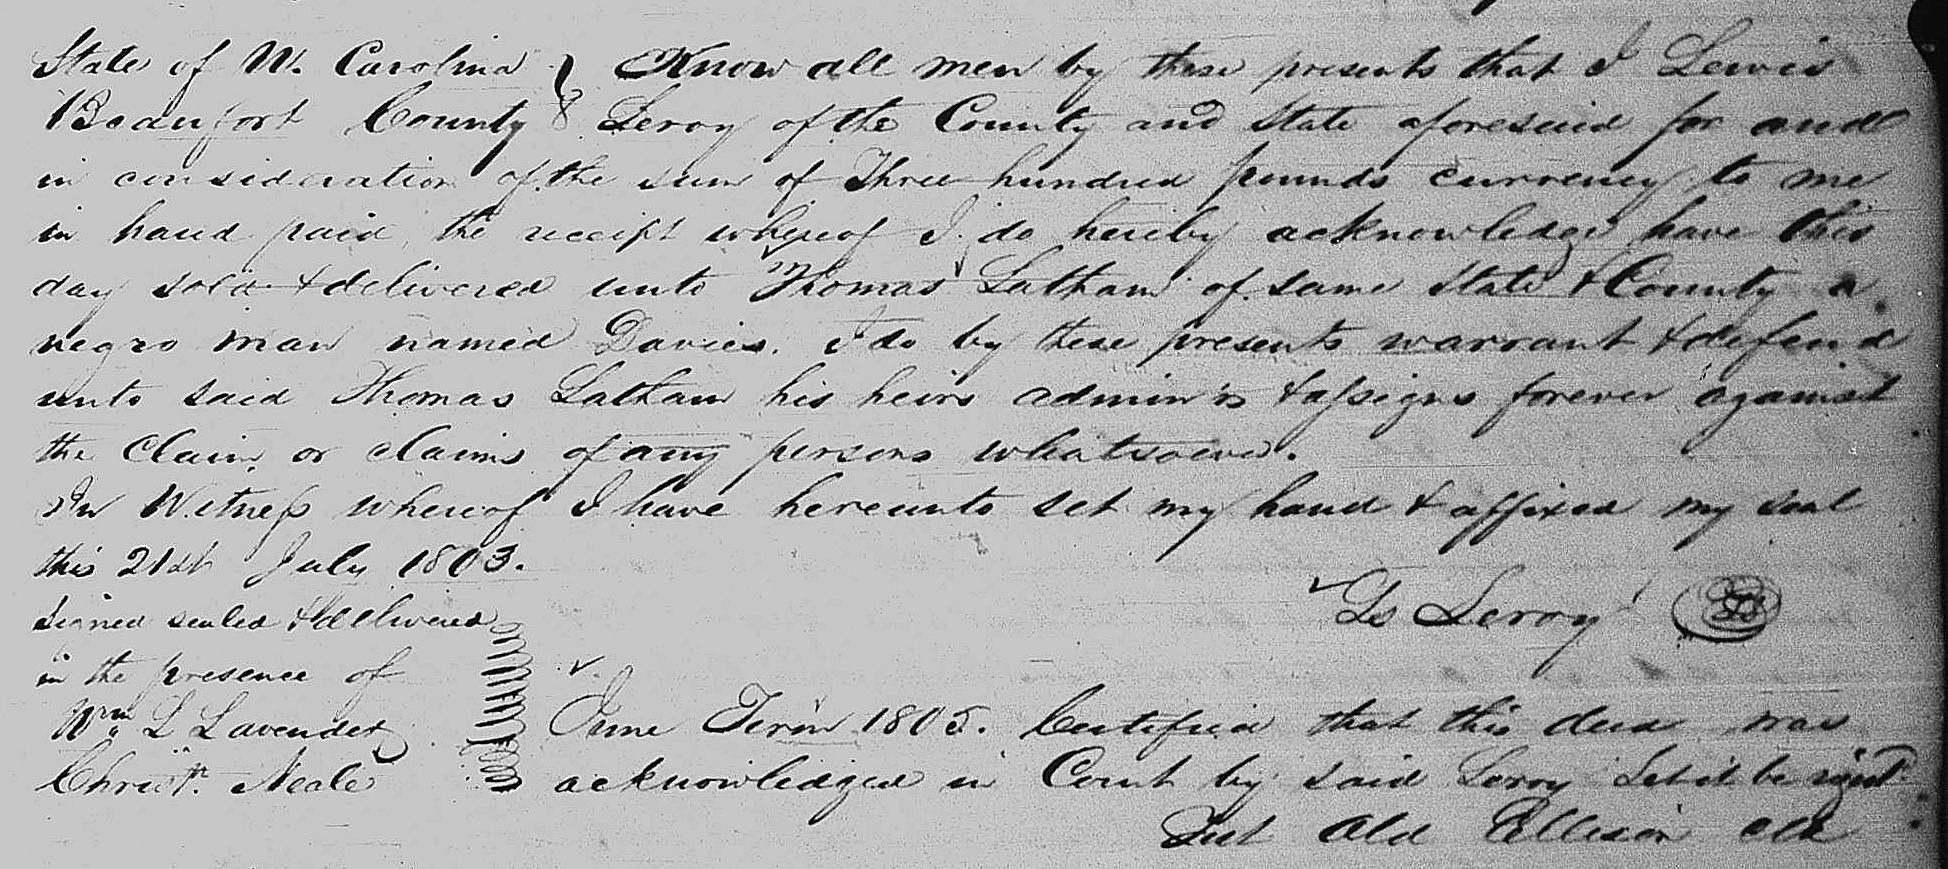 State of N. Carolina } Know all men by these presents that I Lewis
Beaufort County } Leroy of the County and State aforesaid for and
in consideration of the sum of Three hundred pounds currency to me
in hand paid, the receipt whereof I do hereby acknowledge have this
day sold & delivered unto Thomas Latham of same State & County a
negro man named Davies. I do by these presents warrant & defend
unto said Thomas Latham his heirs admin'rs & assigns forever against
the Claim or claims of any persons whatsoever.
In Witness whereof I have hereunto set my hand & affixed my seal
this 21st July 1803.
Ls Leroy
Signed sealed & delivered
in the presence of
Wm. L Lavender
Christr. Neale
June Term 1805. Certified that this deed was
acknowledged in Court by said Leroy Let it be regist
Test Ald Ellison Clk